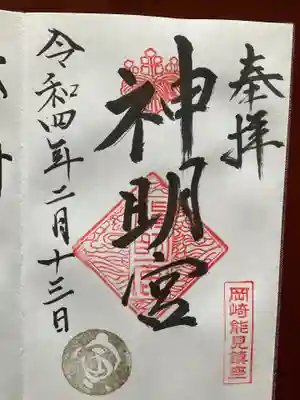 奉拝
神明宮
岡崎能見鎮座
令和四年二月十三日